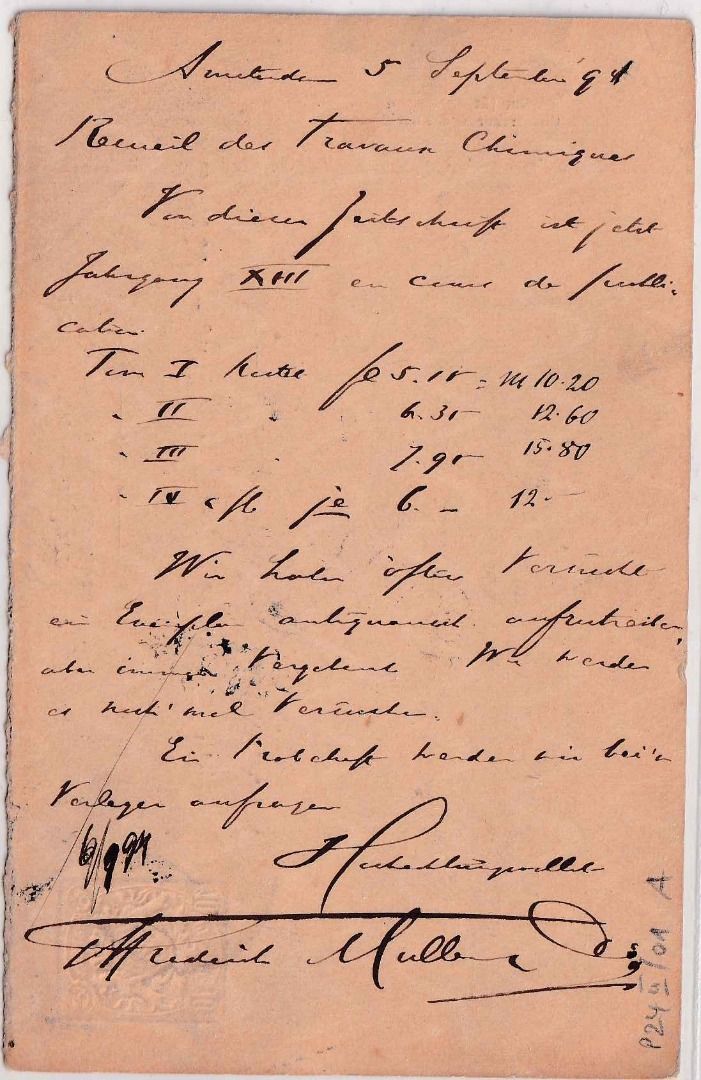 Amsterdam 5 September 94
Recueil des Travaux Chimiques
Von dieser Zeitschrift ist jetzt
Jahrgang XIII en cours de publi-
cation.
Tom I kostet f 5.10 = M 10.20
" II " 6.30 12.60
" III " 7.90 15.80
" IV je 6.— 12.—
Wir haben öfter versucht
ein Exemplar antiquarisch aufzutreiben,
aber immer vergebens. Wir werden
es noch mal versuchen.
Ein Probeheft werden wir bei'm
Verleger anfragen
6/9 94
Hochachtungsvollst
Frederik Muller
P24 II/01 A